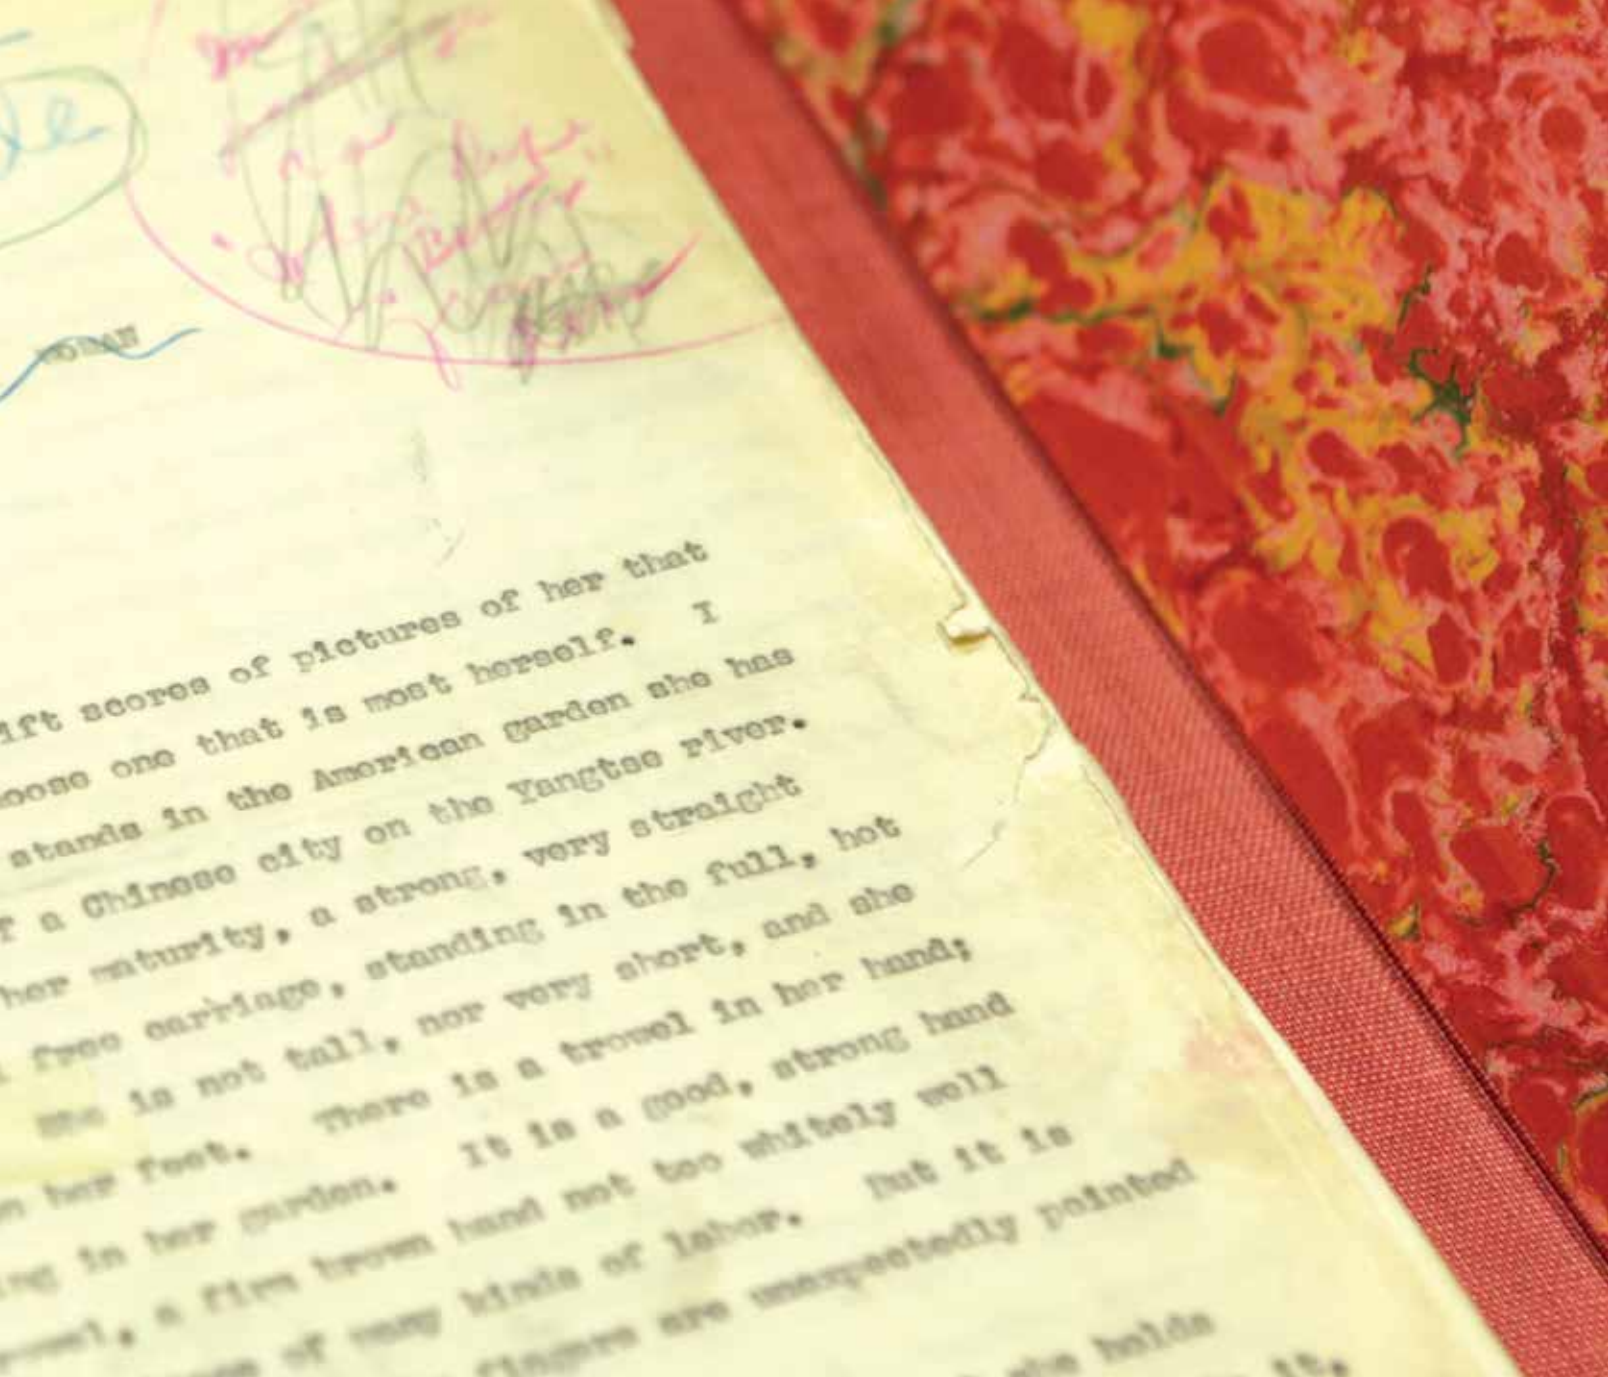 WOMAN
ift scores of pictures of her that
oose one that is most herself. I
stands in the American garden she has
f a Chinese city on the Yangtse river.
her maturity, a strong, very straight
free carriage, standing in the full, hot
She is not tall, nor very short, and she
n her feet. There is a trowel in her hand;
ing in her garden. It is a good, strong hand
owel, a firm brown hand not too whitely well
of many kinds of labor. But it is
fingers are unexpectedly pointed
she holds
it,